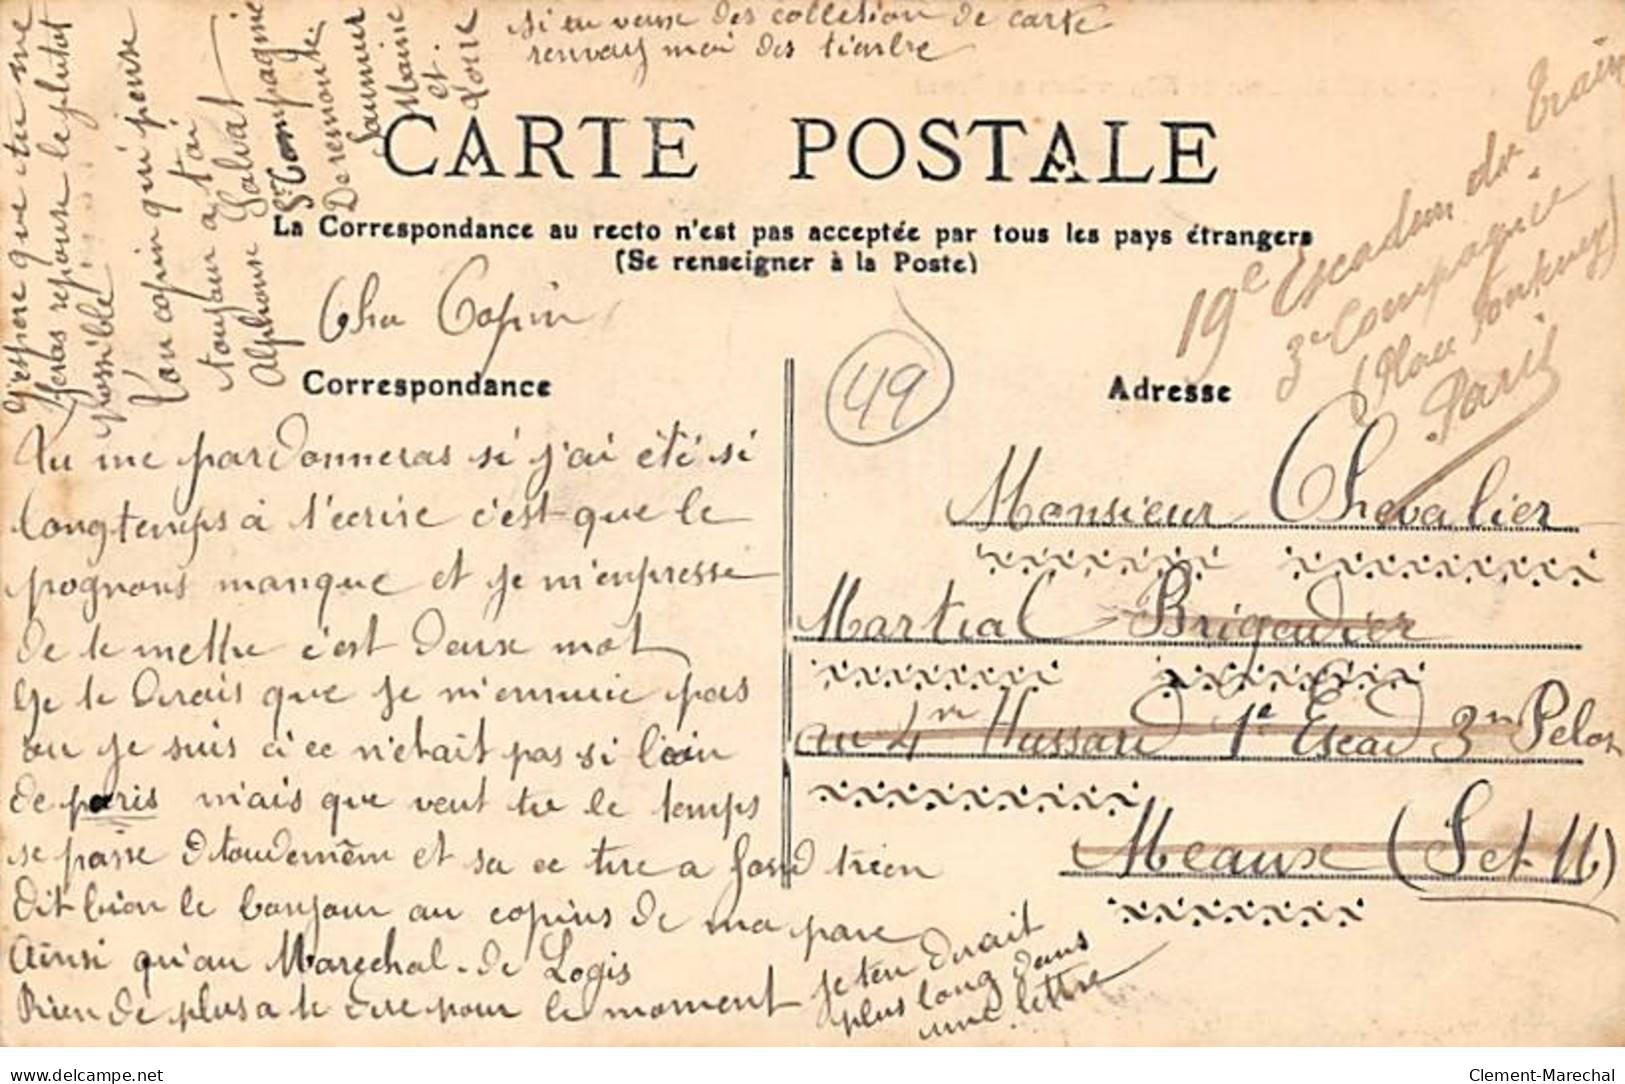 si tu veux des collesion de carte
renvoy moi des timbre
CARTE POSTALE
La Correspondance au recto n'est pas acceptée par tous les pays étrangers
(Se renseigner à la Poste)
Correspondance
Adresse
49
19e Escadron du Train
3e Compagnie
(Place Fontenoy)
Paris
Cher Copin
Tu me pardonneras si j'ai été si
longtemps a t'écrire c'est que le
pognons manque et je m'enpresse
de te mettre c'est deux mot
Je te dirais que je m'ennuie pas
ou je suis ci ce n'etait pas si loin
de paris mais que veut tu le temps
se passe dtoudemêm et sa ce tire a fond trien
dit bien le bonjour au copins de ma pare
Ainsi qu'au Marechal-de Logis
Rien de plus a te dire pour le moment
je ten dirait
plus long dans
une lettre
J'espere que tu me
feras reponse le plutot
possible
Ton copin qui pense
toujour a toi
Alphonse Salvat
Compagnie
De remonte
Saumur
Maine
et
Loire
Monsieur Chevalier
Martial Brigadier
au 4me Hussard 1e Escad 3me Pelot
Meaux (Set M)
Clement-Marechal
delcampe.net